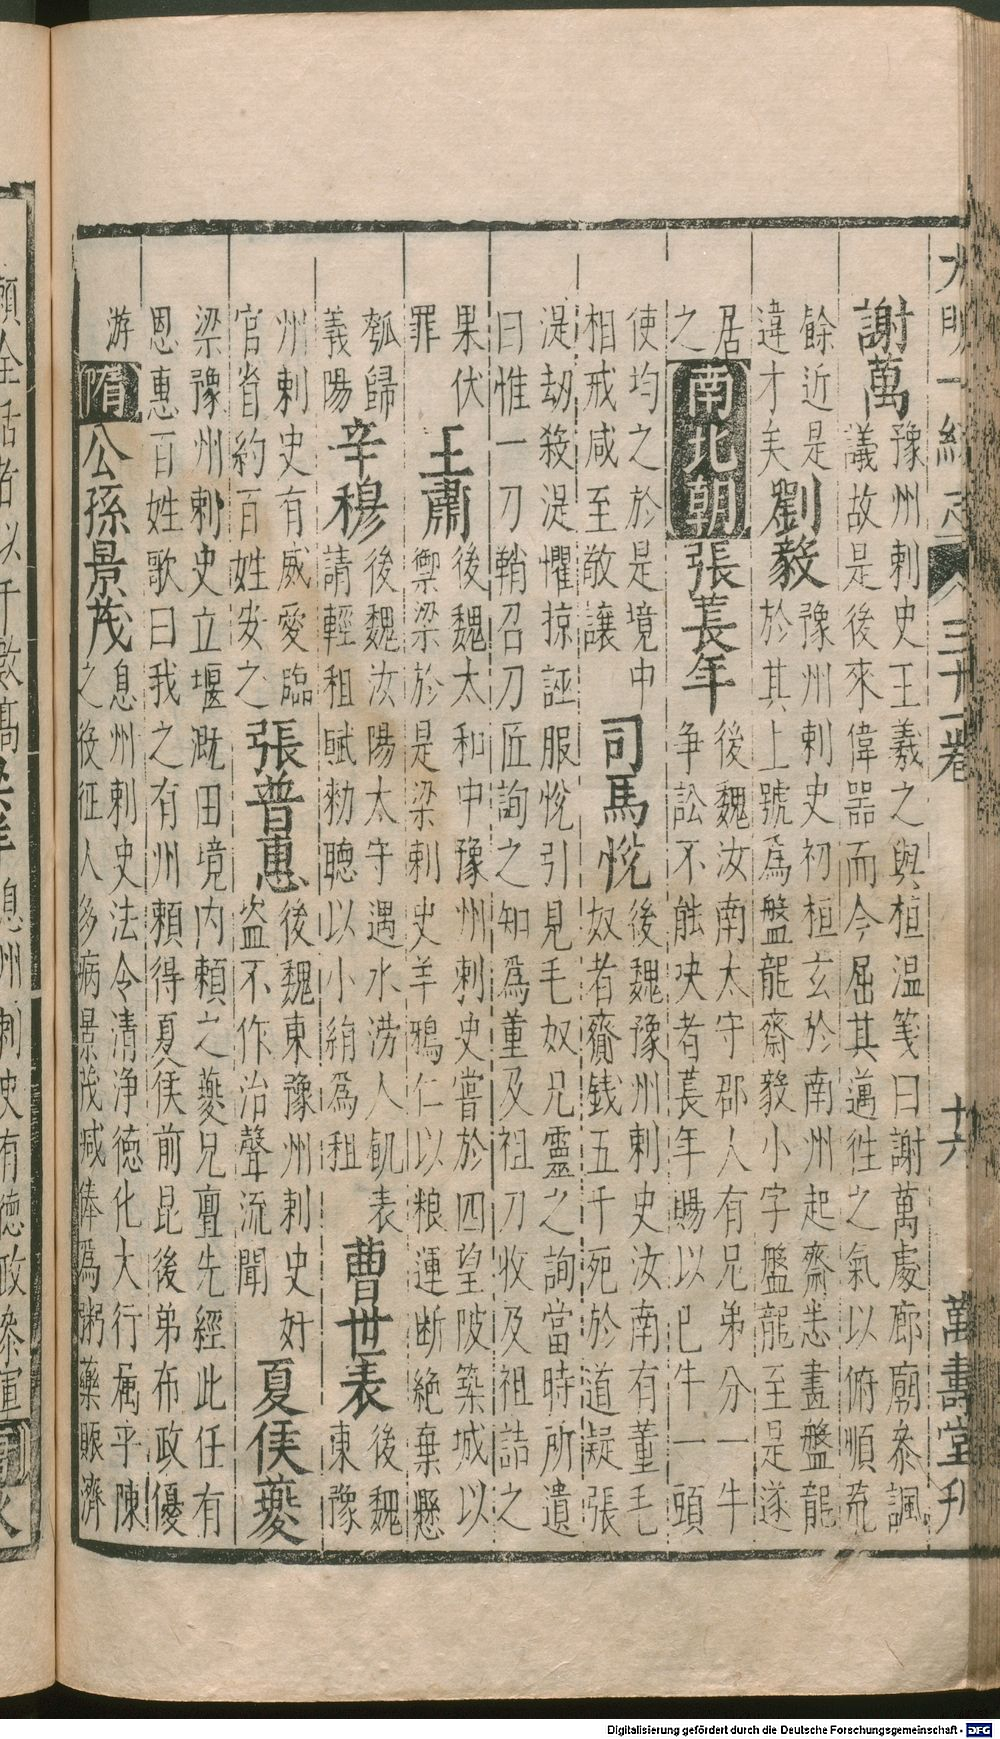 大明一統志 三十一卷 十六 萬壽堂刊
謝萬
豫州刺史王羲之與桓温箋曰謝萬處廊廟叅諷
議故是後來偉噐而今屈其邁徃之氣以俯順㐬
餘近是
違才矣
劉毅
豫州刺史初桓玄於南州起齋悉畫盤龍
於其上號爲盤龍齋毅小字盤龍至是遂
居
之
南北朝
張萇年
後魏汝南太守郡人有兄弟分一牛
争訟不能决者萇年賜以已牛一頭
使均之於是境中
相戒咸至敬讓
司馬悅
後魏豫州刺史汝南有董毛
奴者齎銭五千死於道疑張
湜刼殺湜懼掠誣服悅引見毛奴兄靈之詢當時所遺
曰惟一刀鞘召刀匠詢之知爲董及祖刀收及祖詰之
果伏
罪
王肅
後魏太和中豫州刺史嘗於四望陂築城以
禦梁於是梁刺史羊鴉仁以粮運断絶棄懸
瓠歸
義陽
辛穆
後魏汝陽太守遇水澇人飢表
請輕租賦勑聽以小絹為租
曹世表
後魏
東豫
州刺史有威愛臨
官省約百姓安之
張普惠
後魏東豫州刺史好
盗不作治聲流聞
夏侯夔
梁豫州刺史立堰漑田境内頼之夔兄亶先經此任有
恩惠百姓歌曰我之有州頼得夏侯前昆後弟布政優
游
隋
公孫景茂
息州刺史法令清浄徳化大行属平陳
之役征人多病景茂减俸為粥藥賑濟
頼全活者以千數髙
息州刺史有徳政叅軍
Digitalisierung gefördert durch die Deutsche Forschungsgemeinschaft - DFG